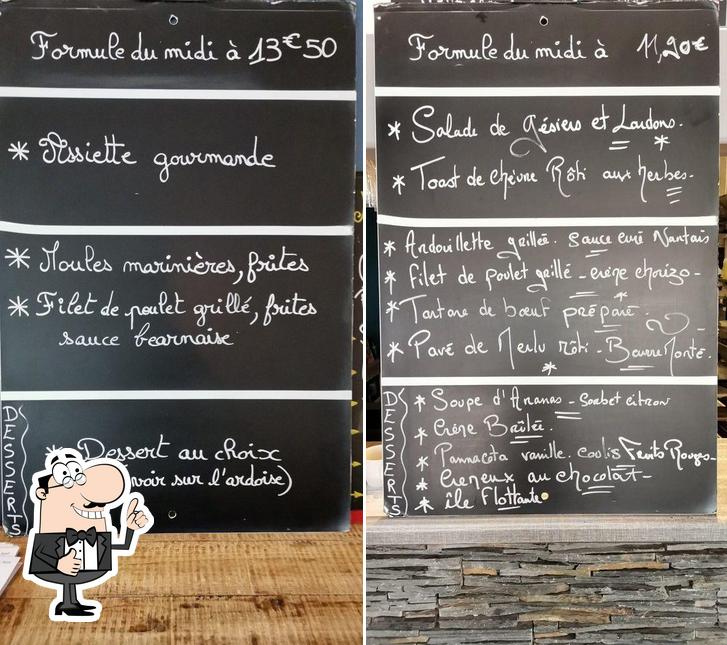 Formule du midi à 13€50
* Assiette gourmande
* Moules marinières, frites
* Filet de poulet grillé, frites
sauce bearnaise
DESSERTS
* Dessert au choix
voir sur l'ardoise)
Formule du midi à 11,90€
* Salade de Gésiers et Lardons.
* Toast de chèvre Rôti aux herbes.
* Andouillette grillée. Sauce curé Nantais
* Filet de poulet grillé - crème chorizo -
* Tartare de bœuf préparé.
* Pavé de Merlu rôti - Beurre Monté.
DESSERTS
* Soupe d'Ananas - Sorbet citron
* Crème Brûlée.
* Pannacota vanille. coulis Fruits Rouges -
* Crémeux au chocolat -
* île Flottante